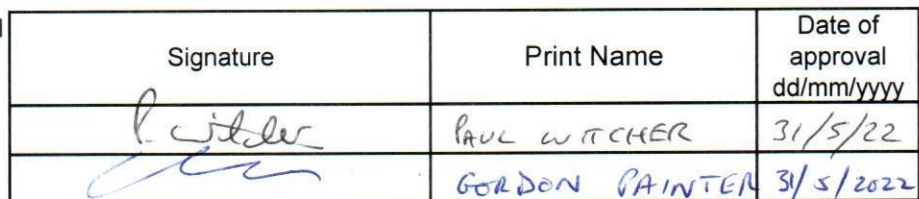 Signature Print Name Date of
approval
dd/mm/yyyy
P. Witcher PAUL WITCHER 31/5/22
GORDON PAINTER 31/5/2022